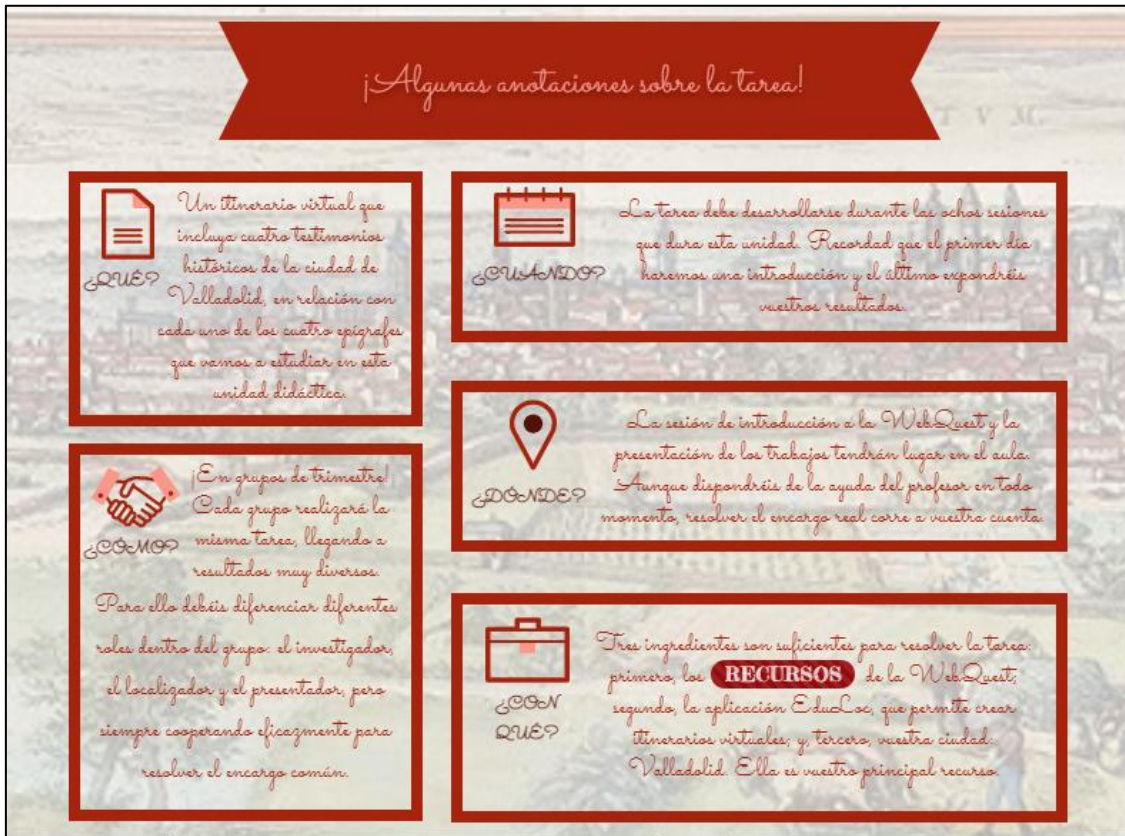 ¡Algunas anotaciones sobre la tarea!
T V M.
¿QUÉ?
Un itinerario virtual que
incluya cuatro testimonios
históricos de la ciudad de
Valladolid, en relación con
cada uno de los cuatro epígrafes
que vamos a estudiar en esta
unidad didáctica.
¿CÓMO?
¡En grupos de trimestre!
Cada grupo realizará la
misma tarea, llegando a
resultados muy diversos.
Para ello debéis diferenciar diferentes
roles dentro del grupo: el investigador,
el localizador y el presentador, pero
siempre cooperando eficazmente para
resolver el encargo común.
¿CUÁNDO?
La tarea debe desarrollarse durante las ochos sesiones
que dura esta unidad. Recordad que el primer día
haremos una introducción y el último expondréis
vuestros resultados.
¿DÓNDE?
La sesión de introducción a la WebQuest y la
presentación de los trabajos tendrán lugar en el aula.
Aunque dispondréis de la ayuda del profesor en todo
momento, resolver el encargo real corre a vuestra cuenta.
¿CON
QUÉ?
Tres ingredientes son suficientes para resolver la tarea:
primero, los RECURSOS de la WebQuest;
segundo, la aplicación EduLoc, que permite crear
itinerarios virtuales; y, tercero, vuestra ciudad:
Valladolid. Ella es vuestro principal recurso.